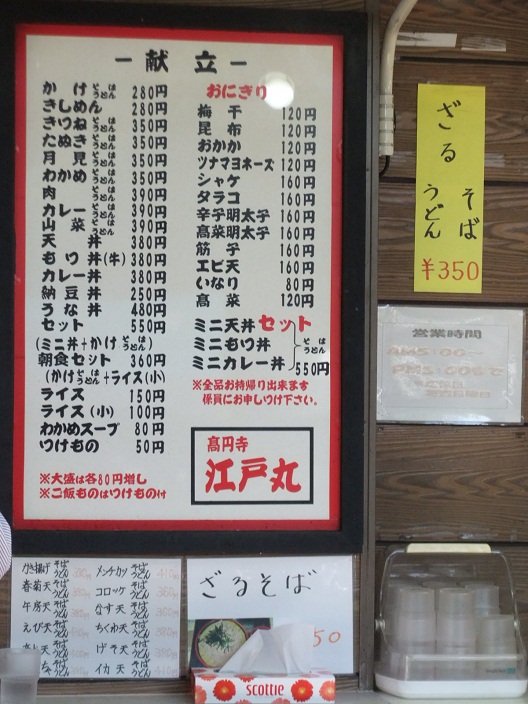 ー献立ー
かけ そばうどん 280円
きしめん 280円
きつね そばうどん 350円
たぬき そばうどん 350円
月見 そばうどん 350円
わかめ そばうどん 350円
肉 そばうどん 390円
カレー そばうどん 390円
山菜 そばうどん 390円
天丼 380円
もつ丼(牛) 380円
カレー丼 380円
納豆丼 250円
うな丼 480円
セット 550円
(ミニ丼+かけ そばうどん)
朝食セット 360円
(かけ そばうどん+ライス(小)
ライス 150円
ライス(小) 100円
わかめスープ 80円
つけもの 50円
※大盛は各80円増し
※ご飯ものはつけもの付
おにぎり
梅干 120円
昆布 120円
おかか 120円
ツナマヨネーズ 120円
シャケ 160円
タラコ 160円
辛子明太子 160円
高菜明太子 160円
筋子 160円
エビ天 160円
いなり 80円
高菜 120円
ミニ天丼セット
ミニもつ丼
ミニカレー丼
そばうどん
550円
※全品お持帰り出来ます
係員にお申しつけ下さい。
高円寺
江戸丸
ざる
そば
うどん
¥350
営業時間
AM5:00〜
かき揚げ そばうどん
春菊天 そばうどん
午房天 そばうどん
えび天 そばうどん
メンチカツ そばうどん
コロッケ そばうどん
なす天 そばうどん
ちくわ天 そばうどん
げそ天 そばうどん
イカ天 そばうどん
ざるそば
50
scottie